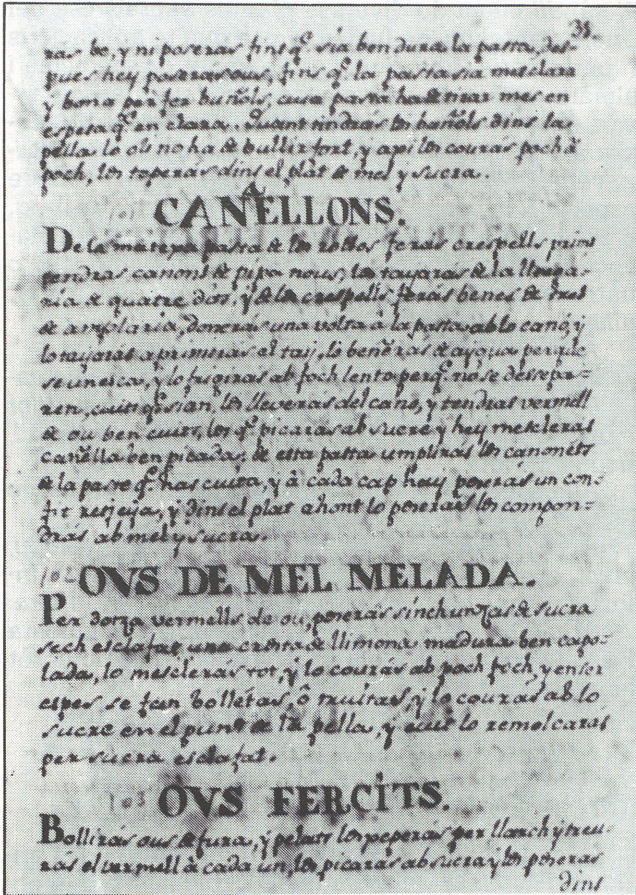 39.
ras be, y ni posaras fins q̃. sia ben dura la pasta, des-
pues hey posaras ous, fins q̃. la pasta sia mesclara
y bona per fer buñols, cuya pasta ha de tirar mes en
espesa q̃. en clara. Quant tindrás los buñols dins la
pella lo oli no ha de bullir fort, y axi los couras poch à
poch, los toparas dins el plàt de mel y sucra.
101 CANELLONS.
De la matexa pasta de los feras crespells prims
tendras canons de pipa nous, los tayaras de la llarga-
ria de quatre dits, y de los crespells ferás benes de tres
de amplaria, donerás una volta à la pasta ab lo canó, y
lo tayaras el tay, lo de aygua perque
se unesca, y lo frigiras ab foch lento perq̃. no se dessepa-
ren, cuits q̃. sian, los llevaras del canó, y tendras vermell
de ou ben cuits, los q̃. picaras ab sucre y hey mesclaras
cañella ben picada; de esta pasta umpliras los canonéts
de la paste q̃. has cuita, y à cada cap hey posarás un con-
fit y dins el plat ahont lo posaràs los compon-
dràs ab mel y sucra.
102 OVS DE MEL MELADA.
Per dotza vermells de ou, posaràs sinch unzas de sucra
sech esclafat, una crosta de llimona madura ben capo-
lada, lo mesclerás tot, y lo couràs ab poch foch y en ser
espes, se fan bolletas, ô truitas, y lo couras ab lo
sucre en el punt de la pella, y cuit lo remolcaras
per sucra esclafat.
103 OVS FERCITS.
Bolliràs ous de fura, y pelats los paparás per llarch y treu-
ras el vermell à cada un, los picaras ab sucra y los posaras
dins